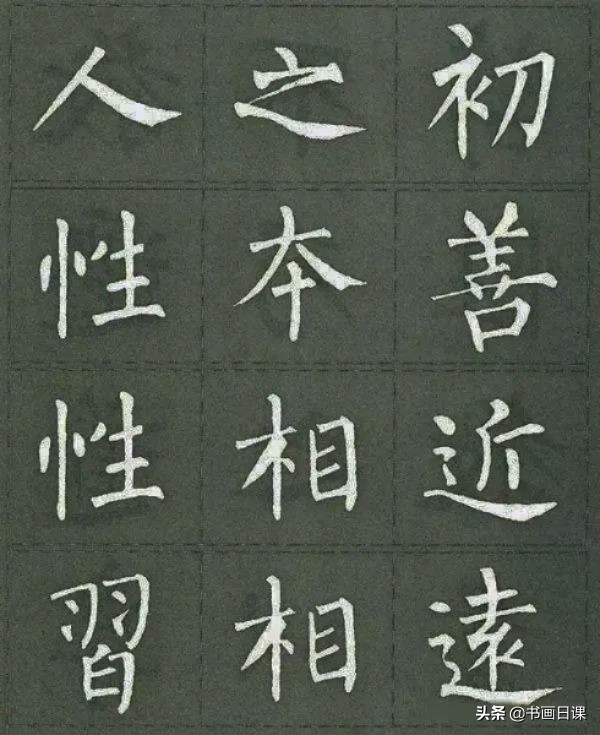 人之初
性本善
性相近
習相遠
头条 @书画日课